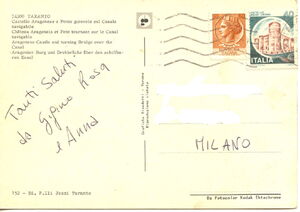 74100 TARANTO
Castello Aragonese e Ponte girevole sul Canale
navigabile
Château Aragonais et Pont tournant sur le Canal
navigable
Aragonese Castle and turning Bridge over the
Canal
Aragonier Burg und Drehbrücke über den schiffba-
ren Kanal
Tanti Saluti
da Gegina Rosa
e Anna
40
ITALIA
MILANO
752 - Ed. F.lli Pezzi Taranto
Da Fotocolor Kodak Ektachrome